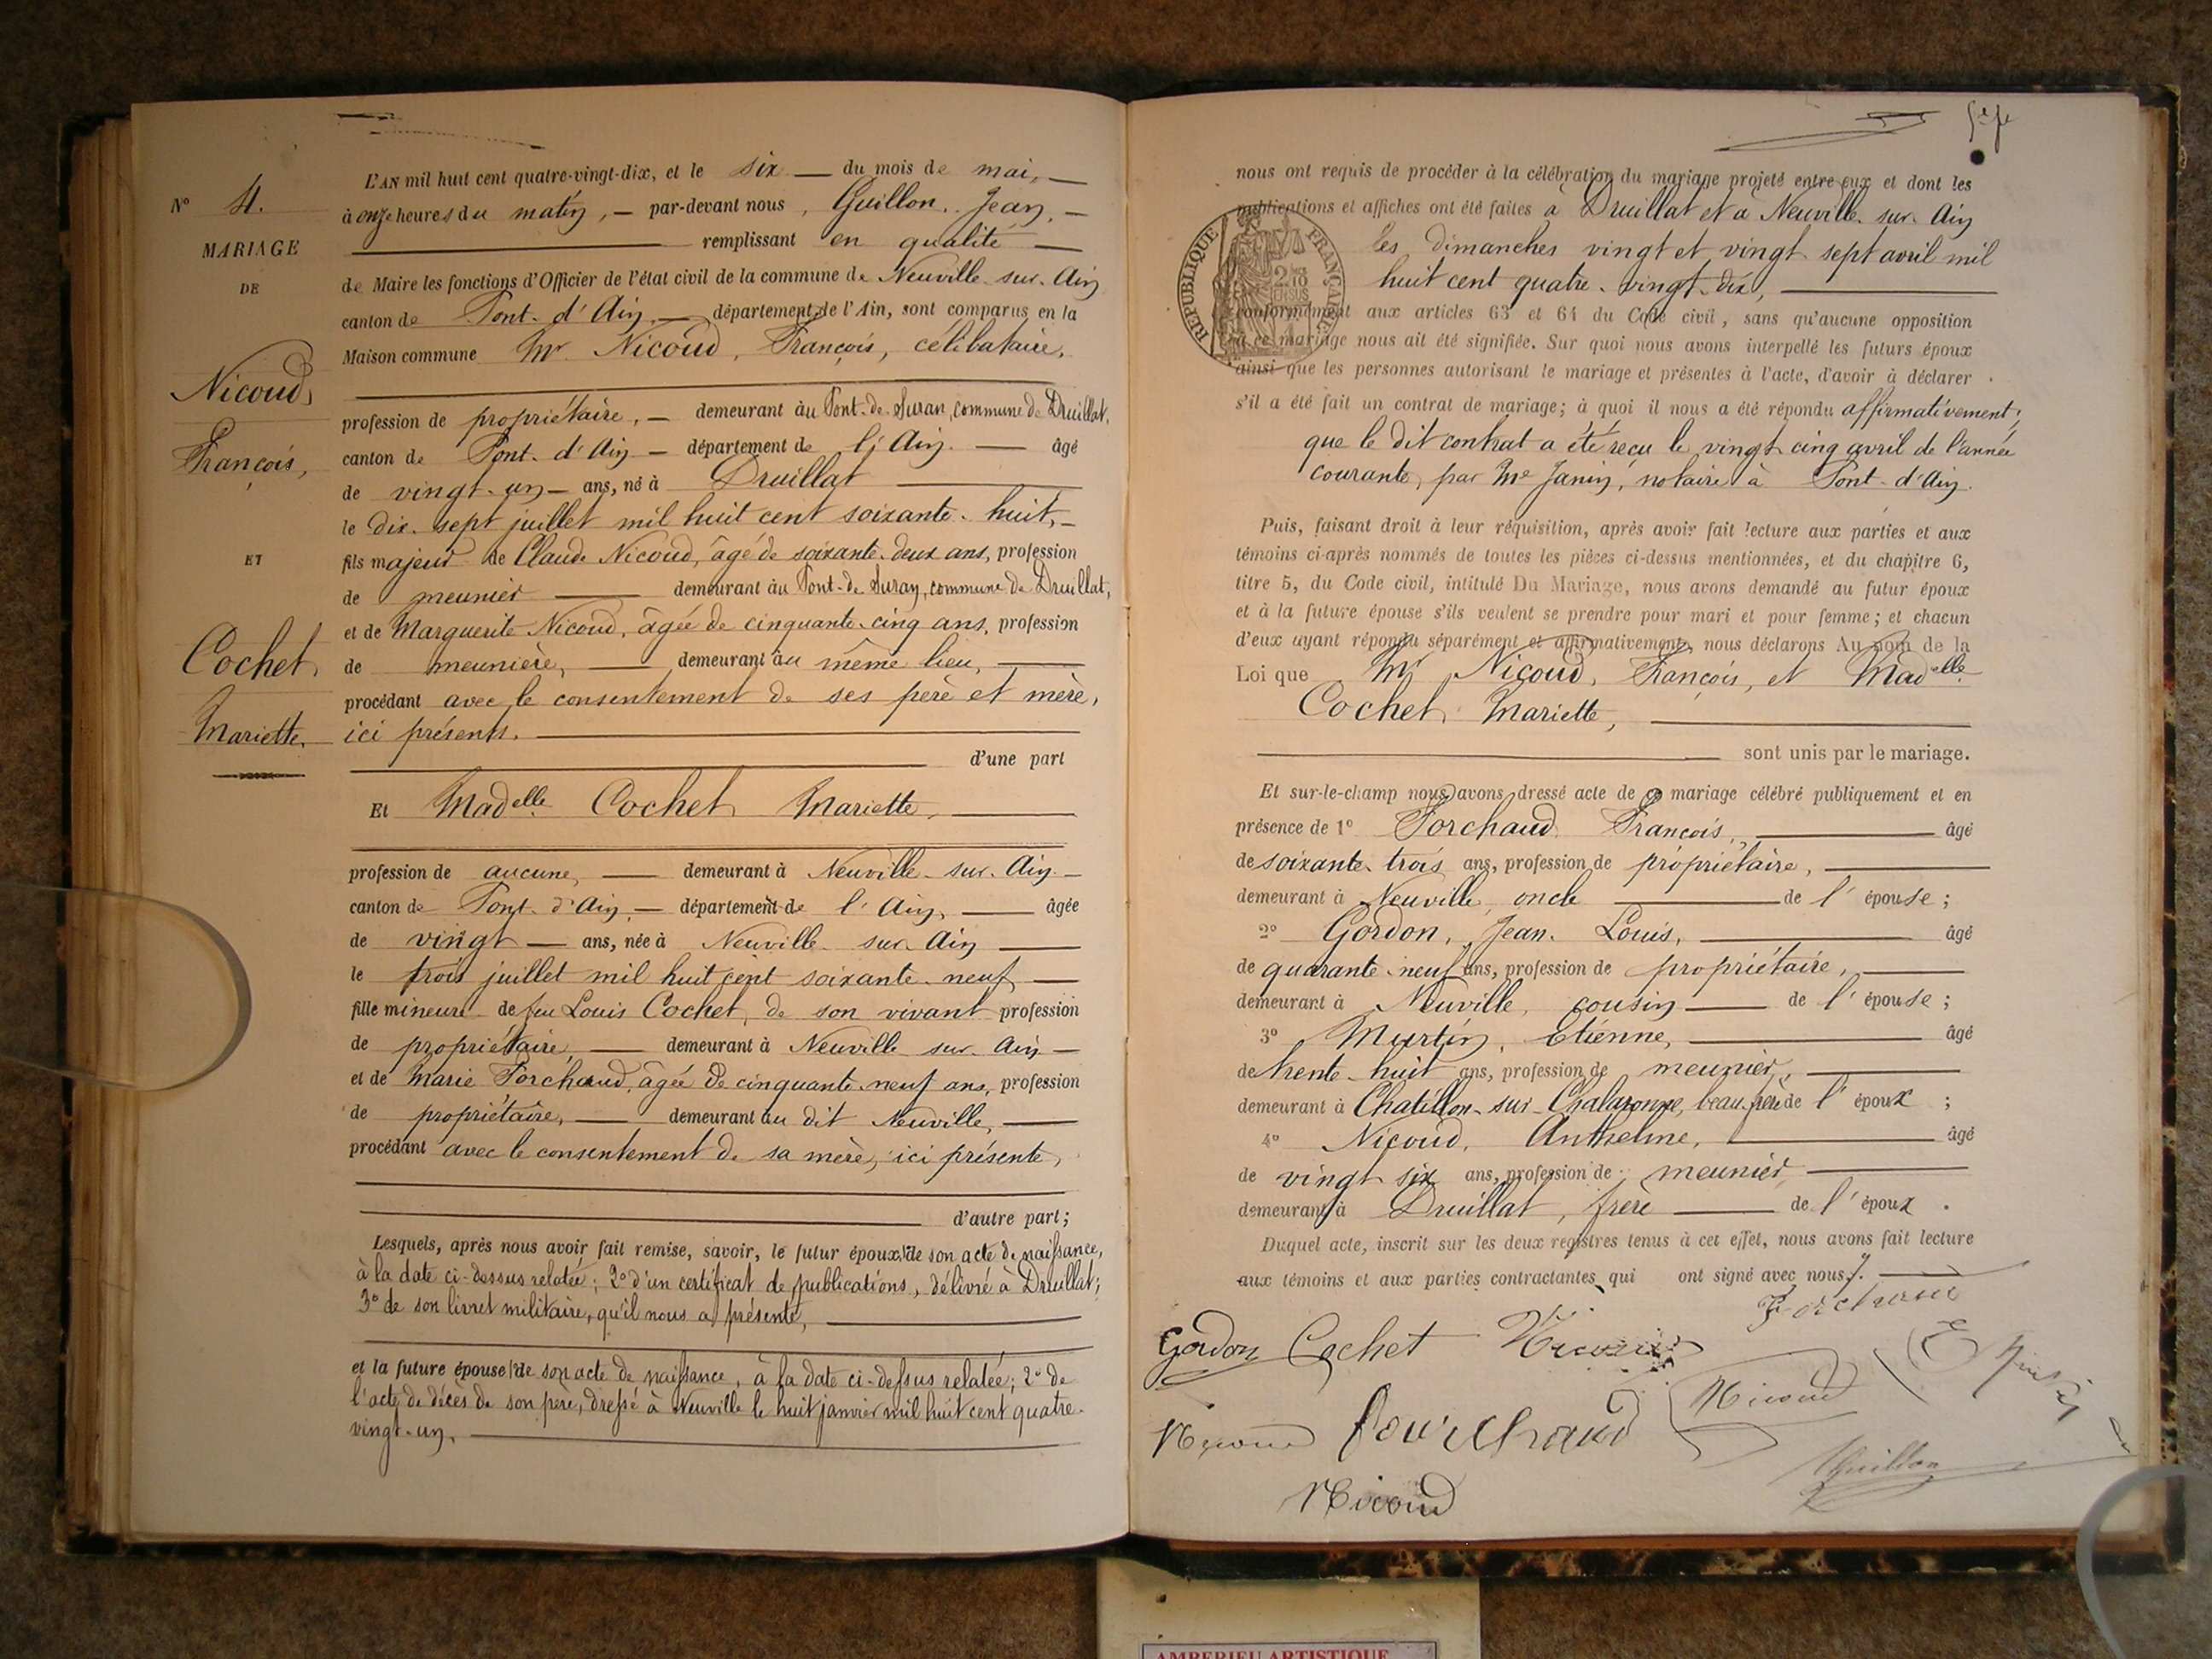 N° 4.
MARIAGE
DE
Nicoud,
François,
ET
Cochet,
Mariette.
L'AN mil huit cent quatre-vingt-dix, et le six du mois de mai,
à onze heures du matin, par-devant nous, Guillon, Jean,
remplissant en qualité
de Maire les fonctions d'Officier de l'état civil de la commune de Neuville-sur-Ain
canton de Pont-d'Ain, département de l'Ain, sont comparus en la
Maison commune Mr Nicoud, François, célibataire,
profession de propriétaire, demeurant au Pont-de-Suran, commune de Druillat,
canton de Pont-d'Ain département de l'Ain. âgé
de vingt-un ans, né à Druillat
le dix-sept juillet mil huit cent soixante-huit,
fils majeur de Claude Nicoud, âgé de soixante-deux ans, profession
de meunier demeurant au Pont-de-Suran, commune de Druillat,
et de Marguerite Nicoud, âgée de cinquante-cinq ans, profession
de meunière, demeurant au même lieu,
procédant avec le consentement de ses père et mère,
ici présents.
d'une part
Et Madelle Cochet Mariette,
profession de aucune, demeurant à Neuville-sur-Ain
canton de Pont-d'Ain, département de l'Ain, âgée
de vingt ans, née à Neuville-sur-Ain
le trois juillet mil huit cent soixante-neuf
fille mineure de feu Louis Cochet, de son vivant profession
de propriétaire, demeurant à Neuville-sur-Ain
et de Marie Forchaud, âgée de cinquante-neuf ans, profession
de propriétaire, demeurant au dit Neuville,
procédant avec le consentement de sa mère, ici présente,
d'autre part;
Lesquels, après nous avoir fait remise, savoir, le futur époux, 1° de son acte de naissance,
à la date ci-dessus relatée; 2° d'un certificat de publications, délivré à Druillat;
3° de son livret militaire, qu'il nous a présenté,
et la future épouse 1° de son acte de naissance, à la date ci-dessus relatée; 2° de
l'acte de décès de son père, dressé à Neuville le huit janvier mil huit cent quatre-
vingt-un,
nous ont requis de procéder à la célébration du mariage projeté entre eux et dont les
publications et affiches ont été faites à Druillat et à Neuville-sur-Ain
les dimanches vingt et vingt-sept avril mil
huit cent quatre-vingt-dix,
RÉPUBLIQUE FRANÇAISE
conformément aux articles 63 et 64 du Code civil, sans qu'aucune opposition
à ce mariage nous ait été signifiée. Sur quoi nous avons interpellé les futurs époux
ainsi que les personnes autorisant le mariage et présentes à l'acte, d'avoir à déclarer
s'il a été fait un contrat de mariage; à quoi il nous a été répondu affirmativement,
que le dit contrat a été reçu le vingt-cinq avril de l'année
courante, par Me Janin, notaire à Pont-d'Ain.
Puis, faisant droit à leur réquisition, après avoir fait lecture aux parties et aux
témoins ci-après nommés de toutes les pièces ci-dessus mentionnées, et du chapitre 6,
titre 5, du Code civil, intitulé Du Mariage, nous avons demandé au futur époux
et à la future épouse s'ils veulent se prendre pour mari et pour femme; et chacun
d'eux ayant répondu séparément et affirmativement, nous déclarons Au nom de la
Loi que Mr Nicoud, François, et Madelle
Cochet Mariette,
sont unis par le mariage.
Et sur-le-champ nous avons dressé acte de ce mariage célébré publiquement et en
présence de 1° Forchaud François, âgé
de soixante-trois ans, profession de propriétaire,
demeurant à Neuville, oncle de l'épouse;
2° Gordon, Jean-Louis, âgé
de quarante-neuf ans, profession de propriétaire,
demeurant à Neuville, cousin de l'épouse;
3° Murtin, Etienne, âgé
de trente-huit ans, profession de meunier,
demeurant à Chatillon-sur-Chalaronne, beau-frère de l'époux;
4° Nicoud, Anthelme, âgé
de vingt-six ans, profession de meunier
demeurant à Druillat, frère de l'époux.
Duquel acte, inscrit sur les deux registres tenus à cet effet, nous avons fait lecture
aux témoins et aux parties contractantes qui ont signé avec nous.
Forchaud
Gordon Cochet Nicoud
Nicoud Fourchaud Nicoud
Guillon
Nicoud
AMBERIEU ARTISTIQUE